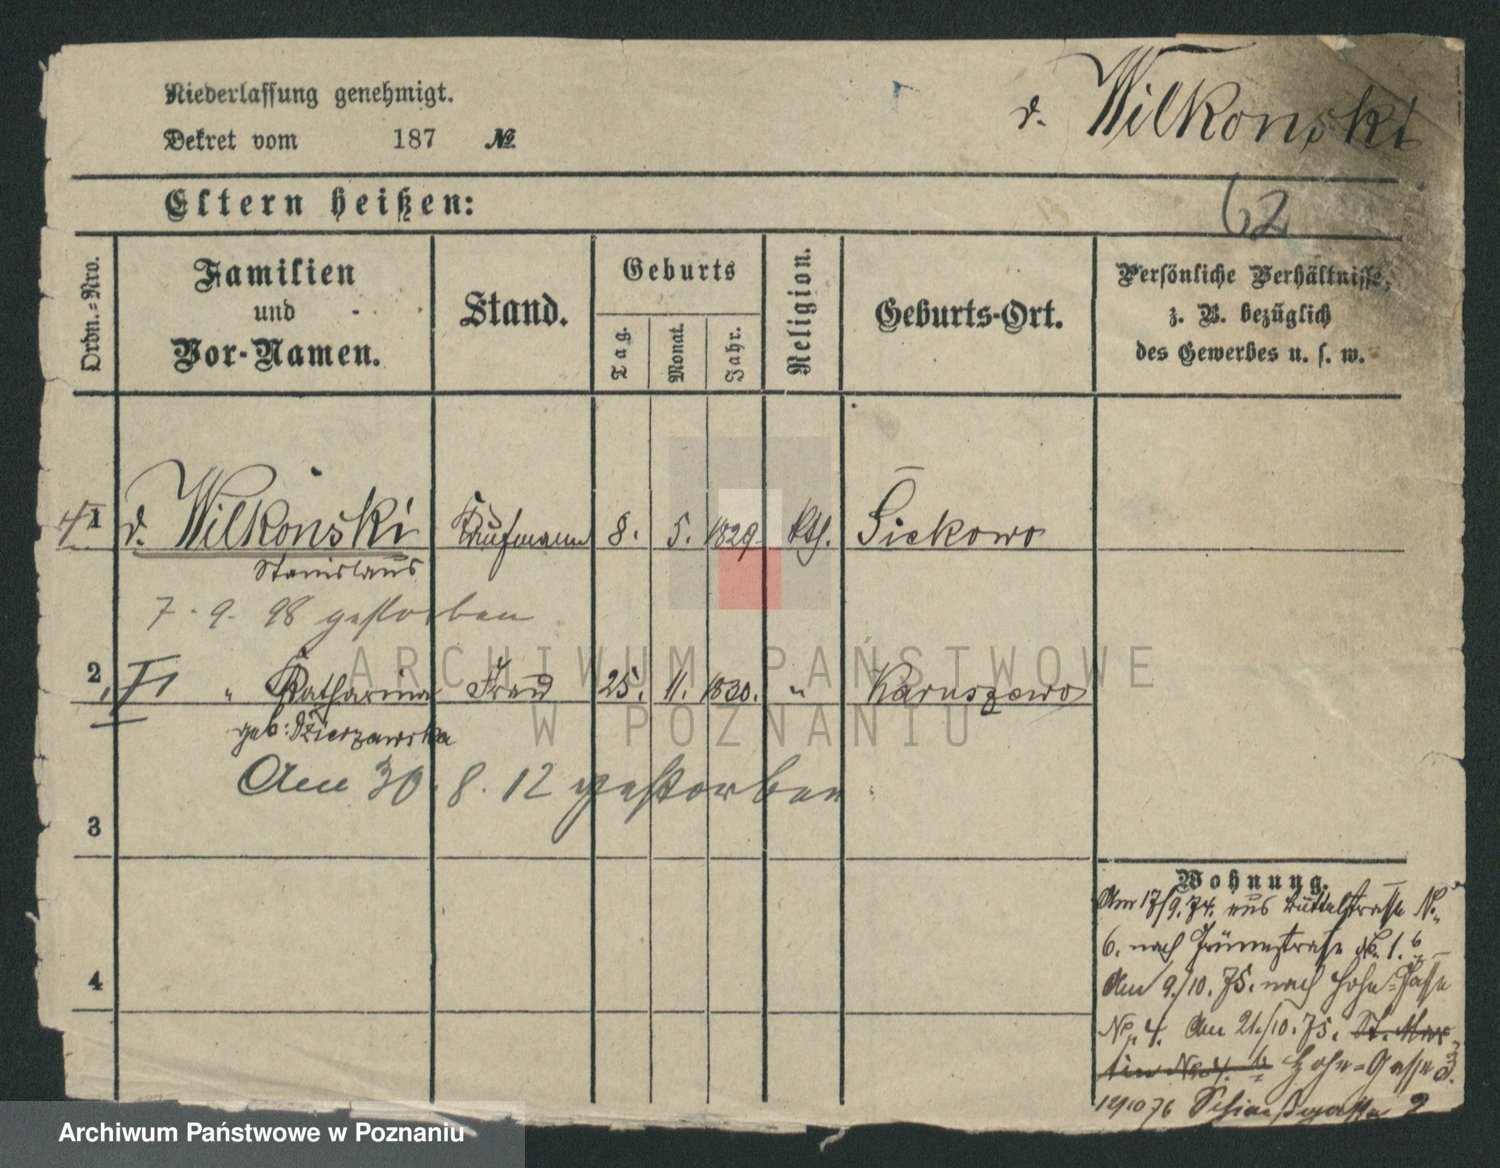 Niederlassung genehmigt.
Dekret vom 187 №
v. Wilkonski
62
Eltern heißen:
Ordn.-Nro.
Familien
und
Vor-Namen.
Stand.
Geburts
Tag.
Monat.
Jahr.
Religion.
Geburts-Ort.
Persönliche Verhältnisse,
z. B. bezüglich
des Gewerbes u. s. w.
1 v. Wilkonski Kaufmann 8. 5. 1829. kth. Siekowo
Stanislaus
7. 9. 98 gestorben
2 " Katharina Frau 25. 11. 1830. " Karuszewo
geb: Dzierzawska
Am 30. 8. 12 gestorben
3
4
Wohnung.
Am 17/9. 74. aus Büttelstrasse No.
6. nach Grünestrasse No. 1. b
Am 9./10. 75. nach Hohe-Gasse
No. 4. Am 21./10. 75. St. Mar-
tin No. 4. Hohe-Gasse 3.
12/10 76 2
ARCHIWUM PAŃSTWOWE
W POZNANIU
Archiwum Państwowe w Poznaniu